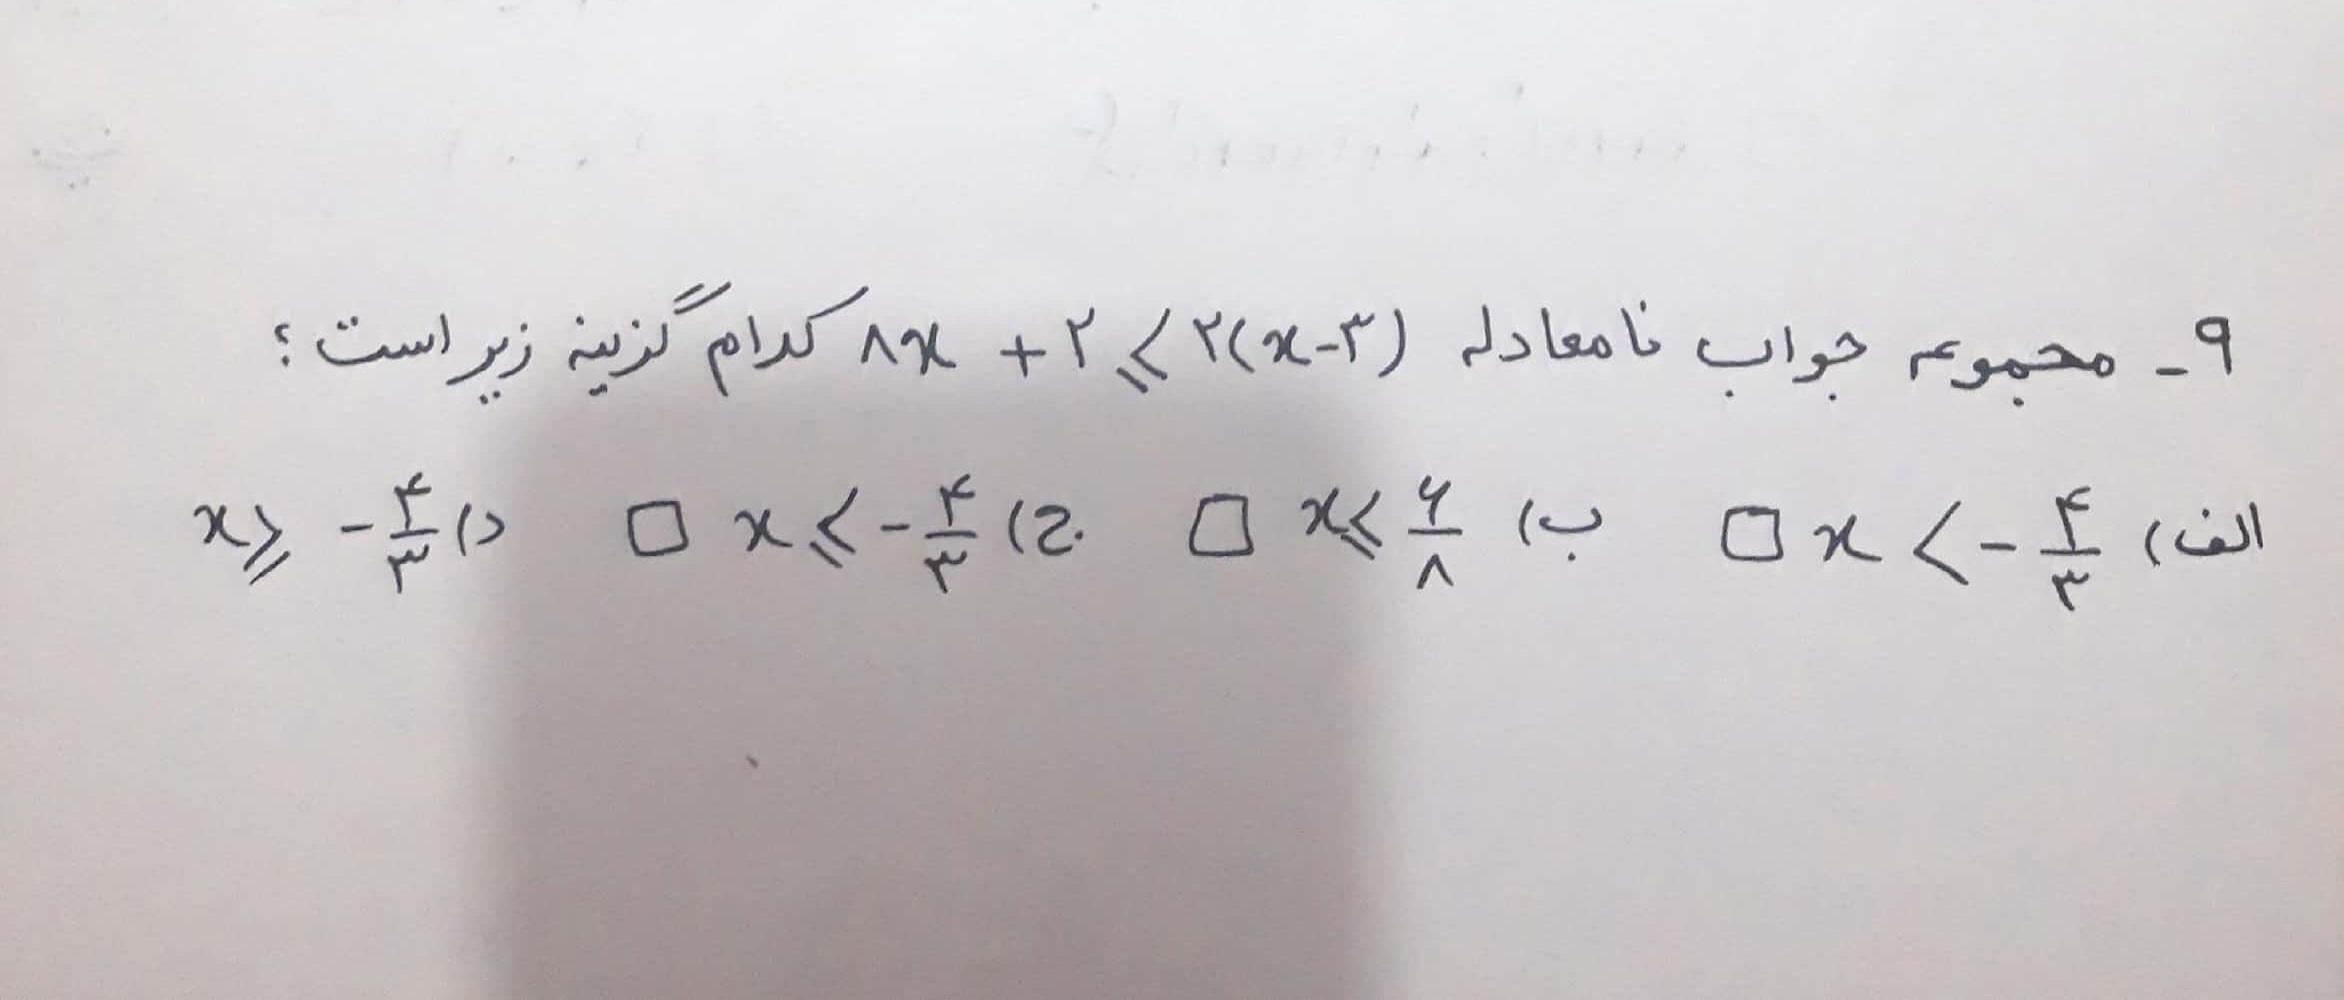 ۹- مجموعه جواب نامعادله ۸x + ۲ ⩽ ۲(x-۳) کدام گزینه زیر است؟
الف) x < -۴/۳ □ ب) x ⩽ ۶/۸ □ ج) x ⩽ -۴/۳ □ د) x ⩾ -۴/۳